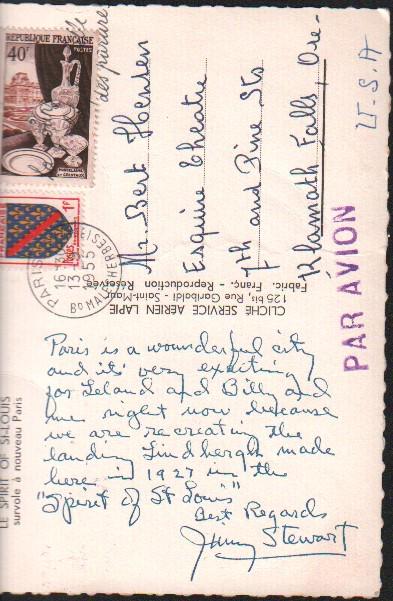 40F
REPUBLIQUE FRANÇAISE
POSTES
PORCELAINE
ET CRISTAUX
1F
POSTES
PARIS
16H
13-9
1955
BD MALESHERBES (
des parures
Mr. Bert Henson
Esquire Theatre
7th and Pine Sts
Klamath Falls, Ore-
U.S.A
PAR AVION
CLICHÉ SERVICE AERIEN LAPIE
125 bis, Rue Garibaldi - Saint-Maur
Fabric. Franç. - Reproduction Réservée
LE SPIRIT OF St-LOUIS
survole à nouveau Paris
Paris is a wounderful city
and it's very exciting
for Leland and Billy and
me right now because
we are recreating the
landing Lindbergh made
here in 1927 in the
"Spirit of St Louis"
Best Regards
Jimmy Stewart